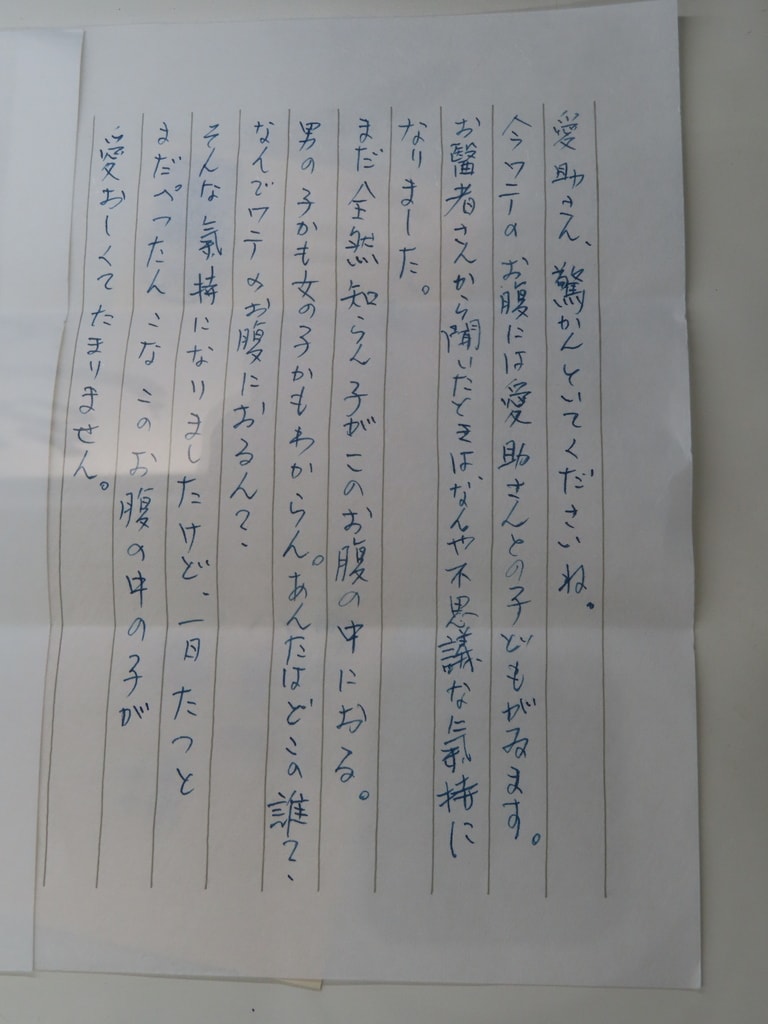 愛助さん、驚かんといてくださいね。
今ワテのお腹には愛助さんとの子どもがゐます。
お醫者さんから聞いたときはなんや不思議な氣持に
なりました。
まだ全然知らん子がこのお腹の中におる。
男の子かも女の子かもわからん。あんたはどこの誰？、
なんでワテのお腹におるん？、
そんな氣持になりましたけど、一日たつと
まだぺったんこなこのお腹の中の子が
愛おしくてたまりません。